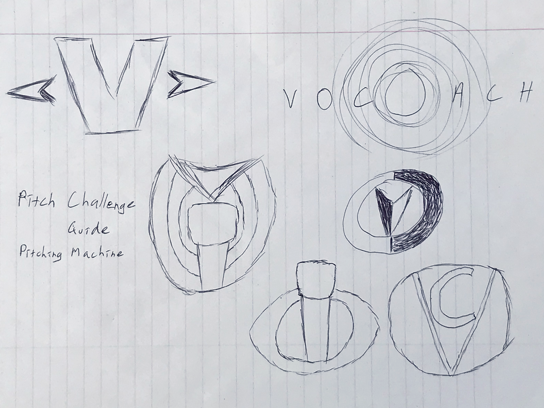 V
V O C O A C H
Pitch Challenge
Guide
Pitching Machine
V
C
V